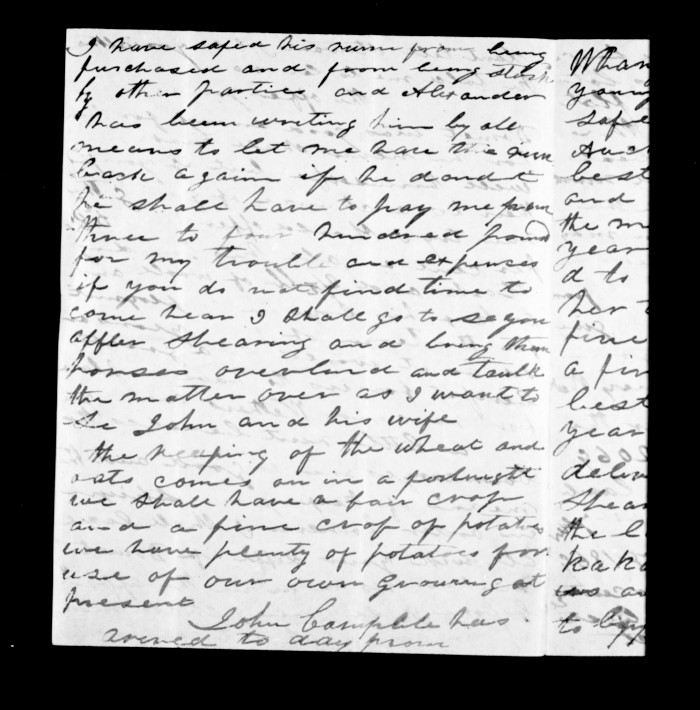 I have safed his runn from being
purchased and from being stock
by other parties and Alexander
has been writing him by all
means to let me have the run
back again if he dond t
he shall have to pay me from
three to four hundred pound
for my trouble and expences
if you do not find time to
come hear I shall go to se you
affter shearing and bring them
horses overland and taulk
the matter over as I want to
Se John and his wife
the reaping of the wheat and
oats comes on in a fortnight
we shall have a fair crop
and a fine crop of potatos
we have plenty of potatos for
use of our own growing at
present
John Camplele has
arived to day from
Whan
young
safe
best
and
the m
year
d to
her t
fine
a fin
best
year
deliv
shear
the l
kaka
us an
to